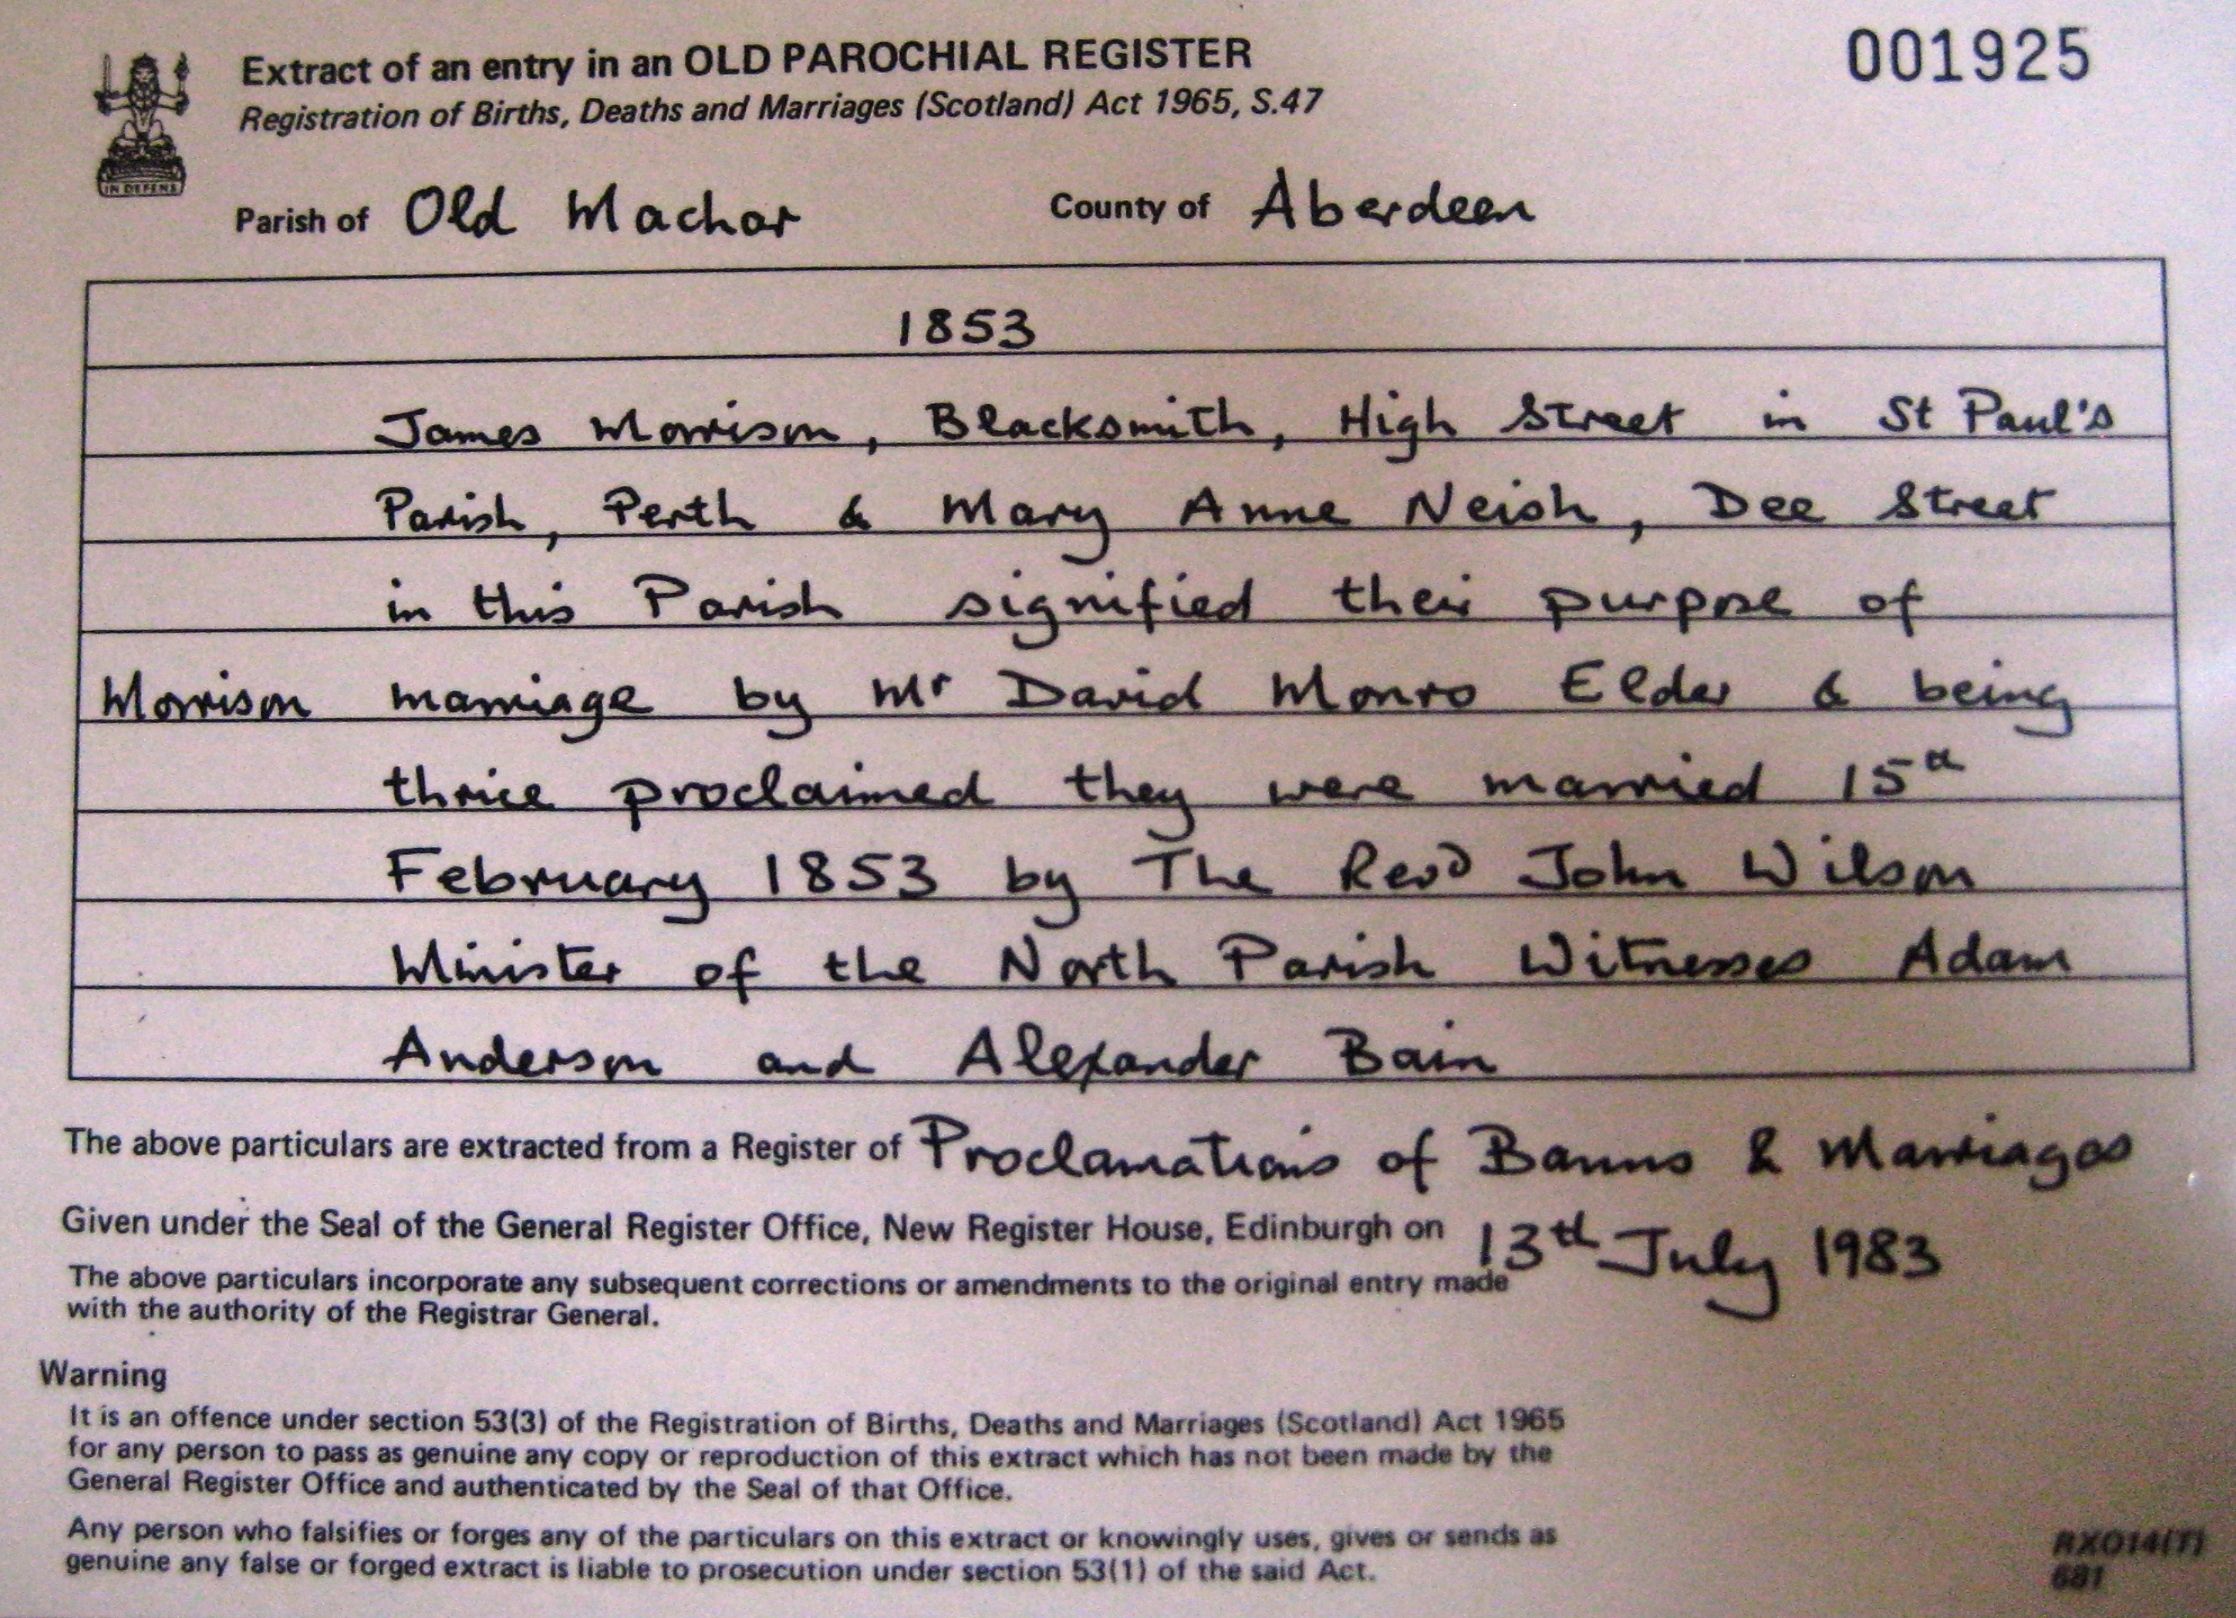 Extract of an entry in an OLD PAROCHIAL REGISTER
001925
Registration of Births, Deaths and Marriages (Scotland) Act 1965, S.47
IN DEFENS
Parish of Old Machar County of Aberdeen
1853
James Morrison, Blacksmith, High Street in St Paul's
Parish, Perth & Mary Anne Neish, Dee Street
in this Parish signified their purpose of
Morrison marriage by Mr David Monro Elder & being
thrice proclaimed they were married 15th
February 1853 by The Revd John Wilson
Minister of the North Parish Witnesses Adam
Anderson and Alexander Bain
The above particulars are extracted from a Register of Proclamations of Banns & Marriages
Given under the Seal of the General Register Office, New Register House, Edinburgh on 13th July 1983
The above particulars incorporate any subsequent corrections or amendments to the original entry made
with the authority of the Registrar General.
Warning
It is an offence under section 53(3) of the Registration of Births, Deaths and Marriages (Scotland) Act 1965
for any person to pass as genuine any copy or reproduction of this extract which has not been made by the
General Register Office and authenticated by the Seal of that Office.
Any person who falsifies or forges any of the particulars on this extract or knowingly uses, gives or sends as
genuine any false or forged extract is liable to prosecution under section 53(1) of the said Act.
RXO14(T)
681